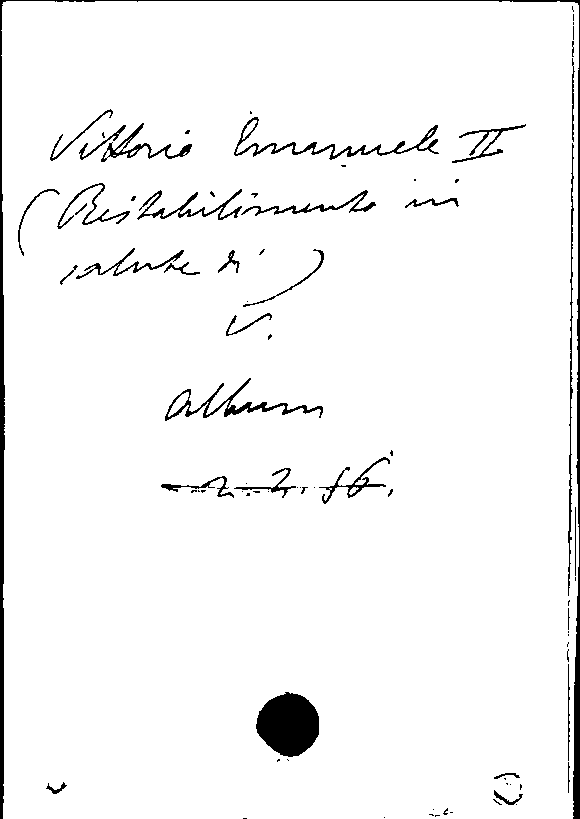 Vittorio Emanuele II
(Ristabilimento in
salute di)
V.
Album